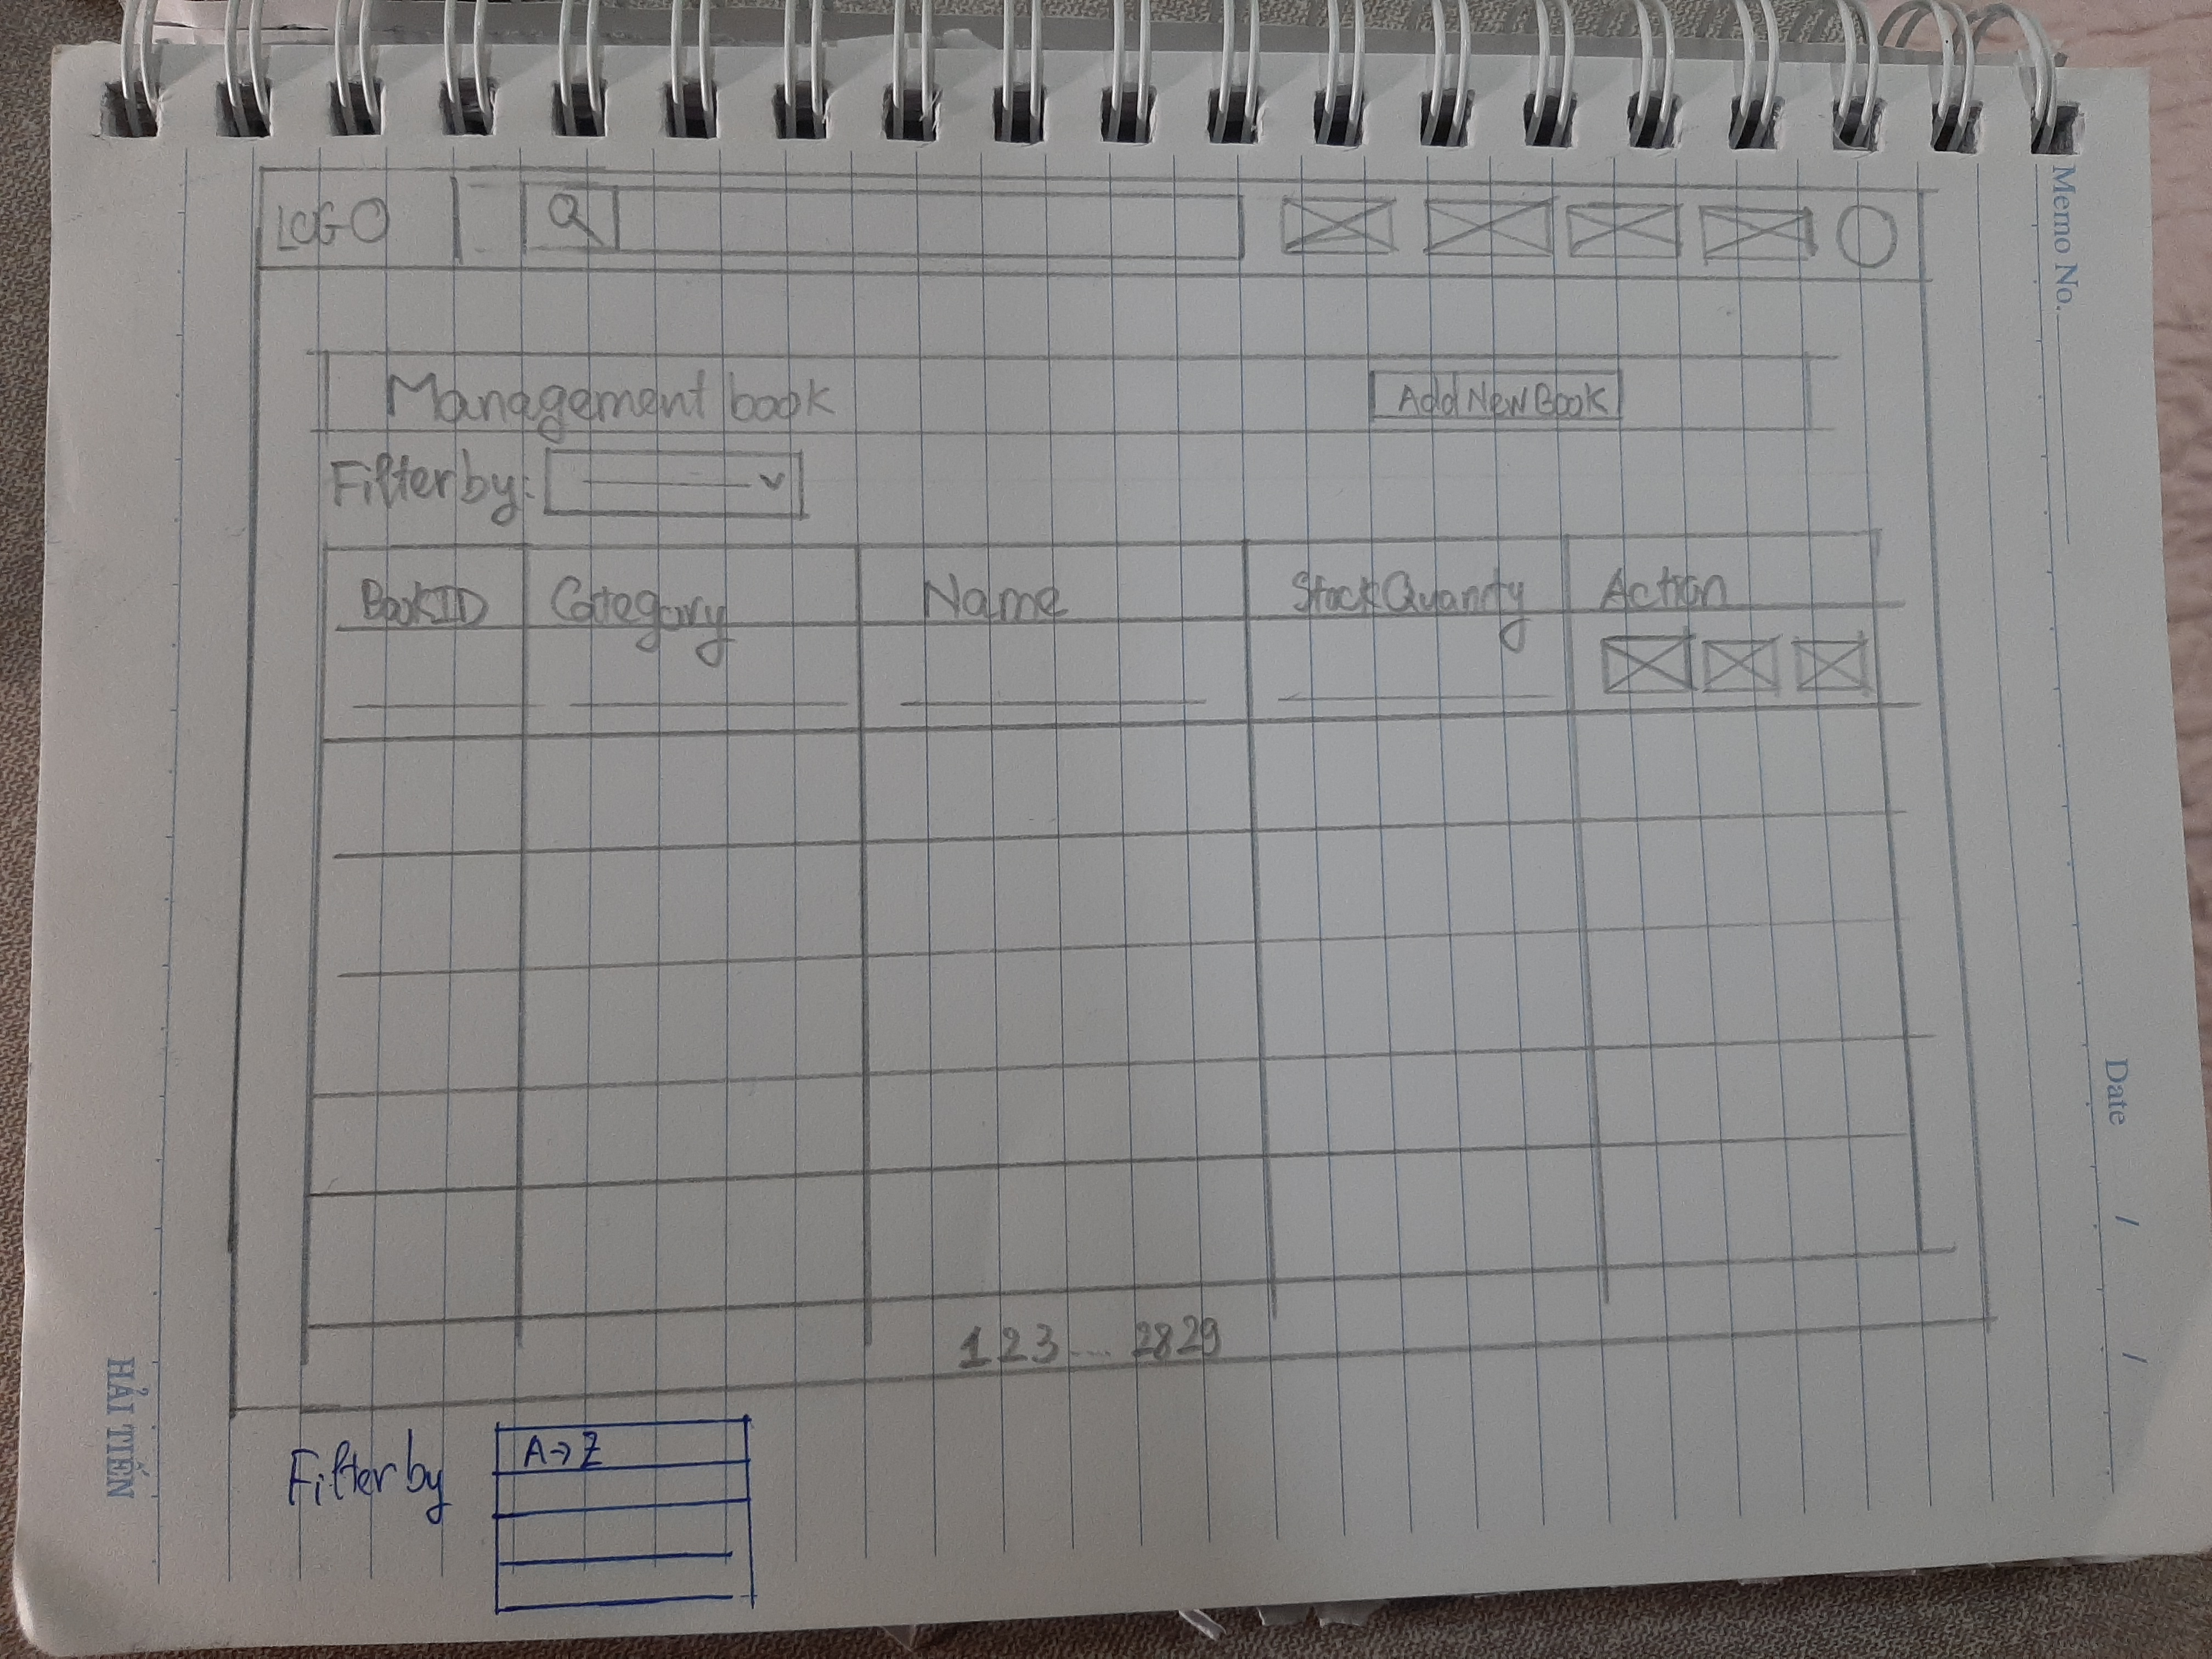 LOGO
Management book
Add New Book
Filter by:
BookID Category Name Stock Quanrty Action
1 2 3 .... 28 29
Filter by
A->Z
HẢI TIẾN
Memo No.
Date / /